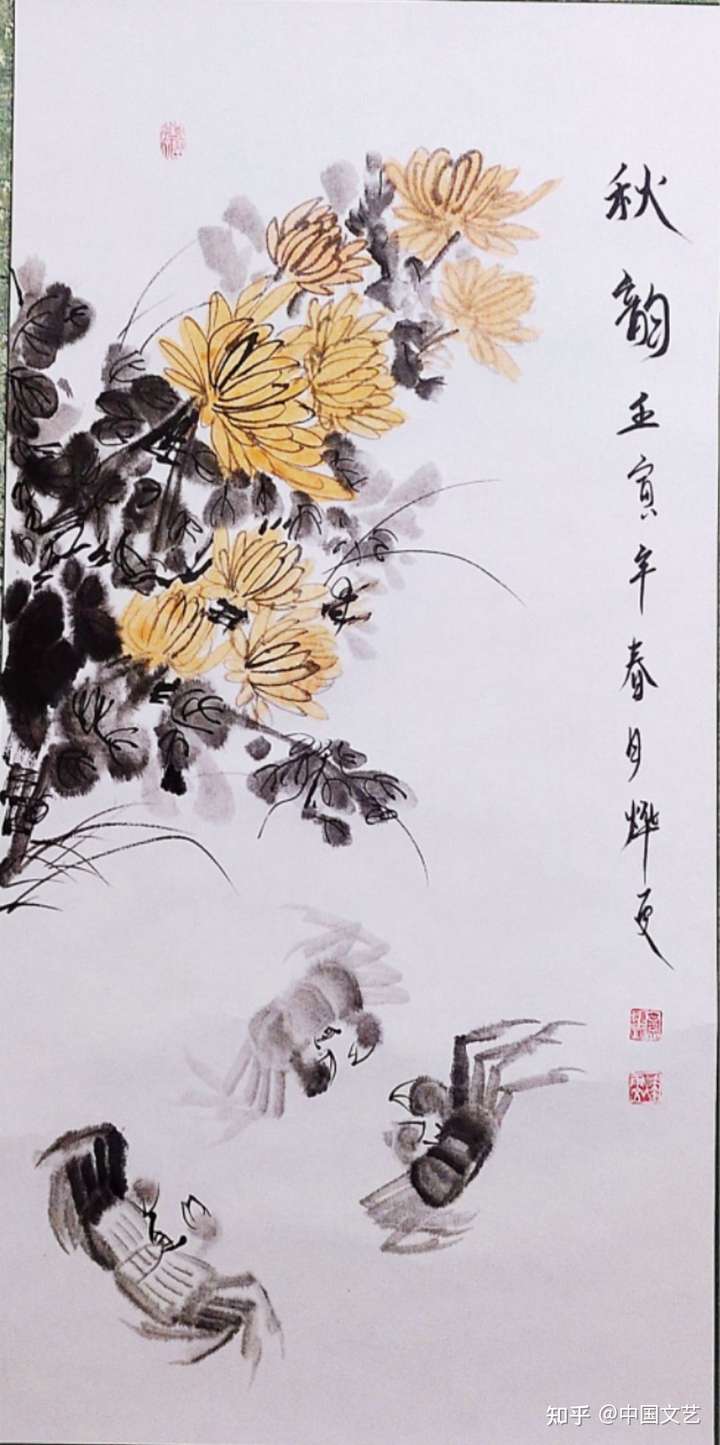 秋韵壬寅年春月烨更
知乎 @中国文艺